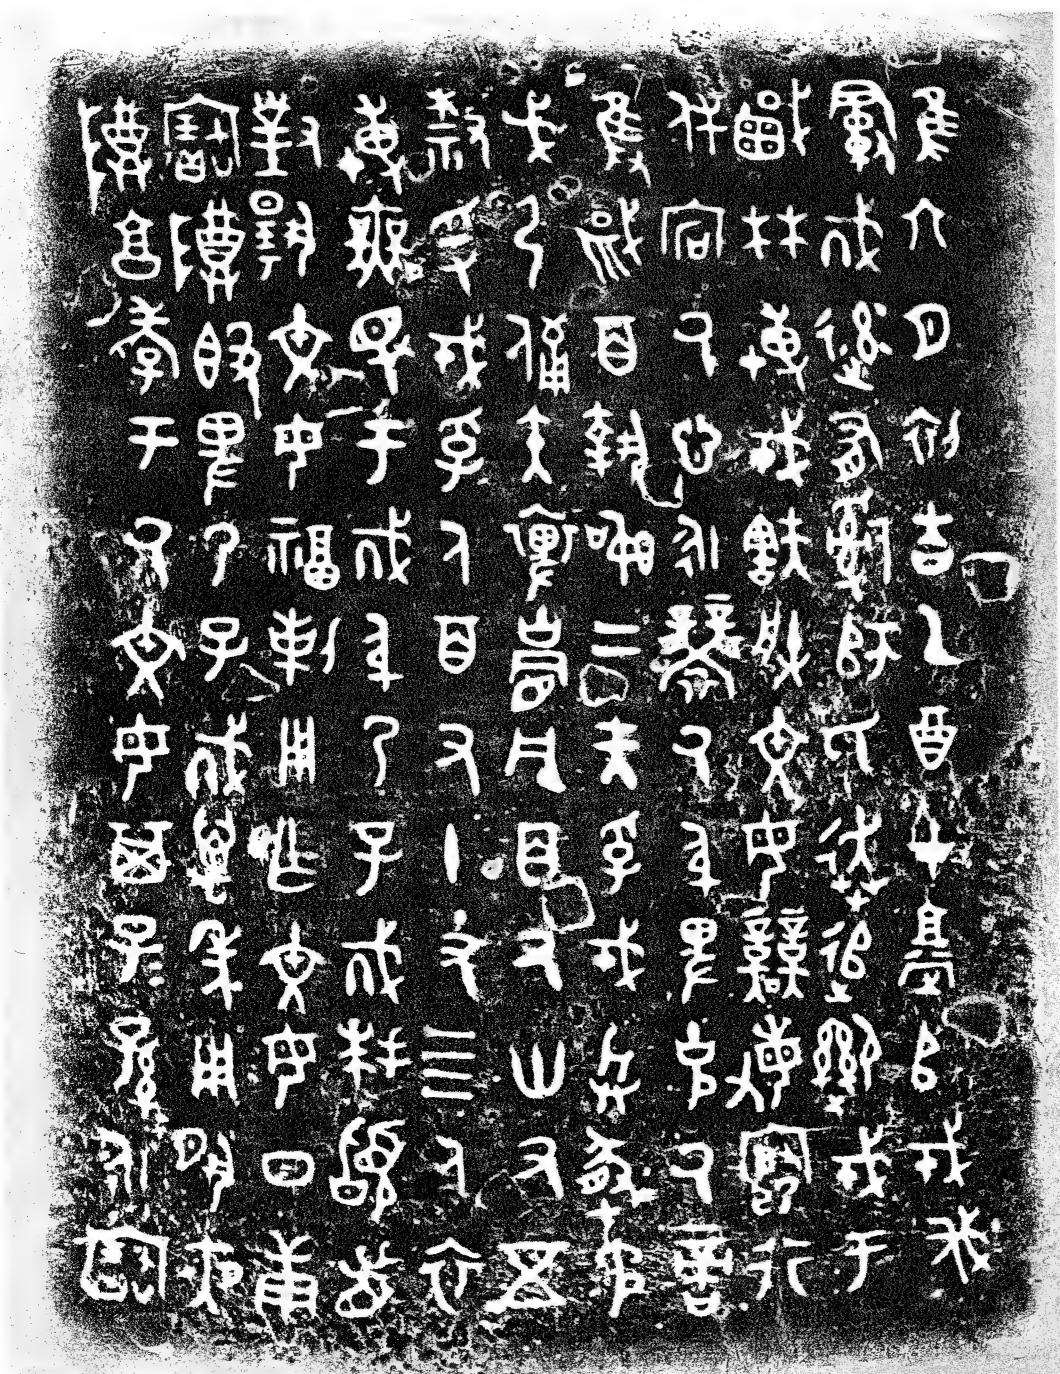 隹六月初吉乙酉才𩫨𠂤戎伐
𩰫㦰率有𤔲師氏奔追御戎于
棫林搏戎㝬朕文母競敏𡨦行
休宕氒心永襲氒身卑克氒啻
隻馘百執訊二夫孚戎兵盾矛
戈弓備矢裨冑凡百又卅又五
款孚戎孚人百又十又四人衣
搏無斁于㦰身乃子㦰拜稽首
對揚文母福剌用乍文母日庚
寶尊簋卑乃子㦰萬年用夙夜
尊享孝于氒文母其子=孫=永寶